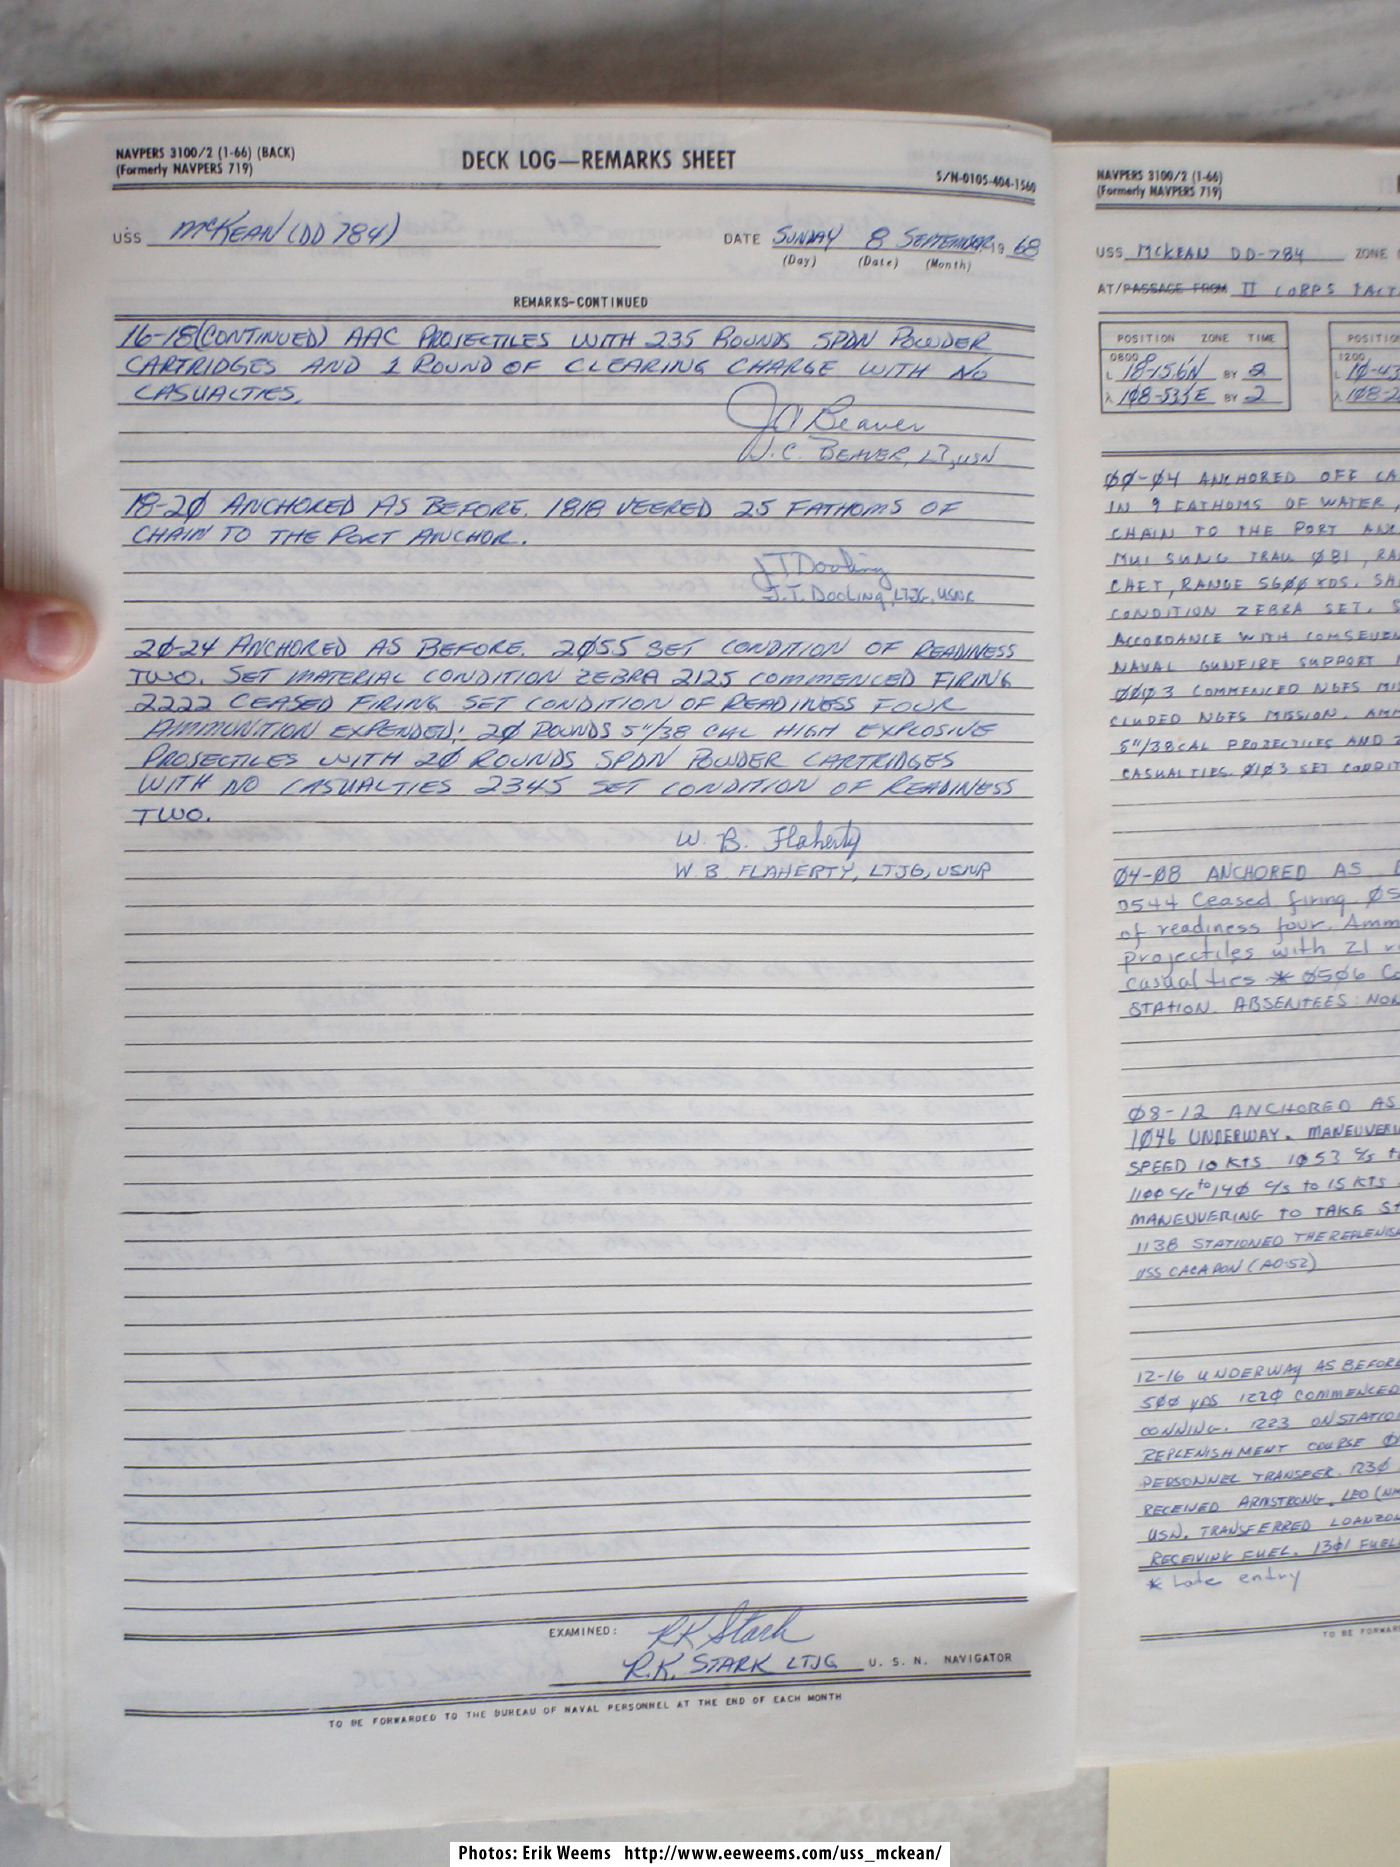 NAVPERS 3100/2 (1-66) (BACK)
(Formerly NAVPERS 719)
DECK LOG—REMARKS SHEET
S/N-0105-404-1560
USS McKEAN (DD 784)
DATE SUNDAY 8 SEPTEMBER, 19 68
(Day) (Date) (Month)
REMARKS-CONTINUED
16-18 (CONTINUED) AAC PROJECTILES WITH 235 ROUNDS SPDN POWDER
CARTRIDGES AND 1 ROUND OF CLEARING CHARGE WITH NO
CASUALTIES.
J C Beaver
J. C. BEAVER, LT, USN
18-2Ø ANCHORED AS BEFORE. 1818 VEERED 25 FATHOMS OF
CHAIN TO THE PORT ANCHOR.
J T Dooling
J. T. DOOLING, LTJG, USNR
2Ø-24 ANCHORED AS BEFORE. 2Ø55 SET CONDITION OF READINESS
TWO. SET MATERIAL CONDITION ZEBRA 2125 COMMENCED FIRING
2222 CEASED FIRING SET CONDITION OF READINESS FOUR
AMMUNITION EXPENDED: 2Ø ROUNDS 5"/38 CAL HIGH EXPLOSIVE
PROJECTILES WITH 2Ø ROUNDS SPDN POWDER CARTRIDGES
WITH NO CASUALTIES 2345 SET CONDITION OF READINESS
TWO.
W. B. Flaherty
W B FLAHERTY, LTJG, USNR
EXAMINED: RK Stark
R.K. STARK LTJG U. S. N. NAVIGATOR
TO BE FORWARDED TO THE BUREAU OF NAVAL PERSONNEL AT THE END OF EACH MONTH
NAVPERS 3100/2 (1-66)
(Formerly NAVPERS 719)
USS McKEAN DD-784 ZONE
AT/PASSAGE FROM II CORPS
POSITION ZONE TIME
0800
L 18-15.6N BY 2
λ 1Ø8-53.5E BY 2
1200
ØØ-Ø4 ANCHORED OFF
IN 9 FATHOMS OF WATER,
CHAIN TO THE PORT
MUI SUNG TRAU Ø81,
CHET, RANGE 56ØØ YDS.
CONDITION ZEBRA SET.
ACCORDANCE WITH
NAVAL GUNFIRE SUPPORT
ØØØ3 COMMENCED NGFS
CLUDED NGFS MISSION.
5"/38CAL PROJECTILES AND
CASUALTIES. Ø1Ø3 SET
Ø4-Ø8 ANCHORED AS
Ø544 Ceased firing.
of readiness four.
projectiles with 21
casualties * Ø5Ø6
STATION. ABSENTEES:
Ø8-12 ANCHORED AS
1Ø46 UNDERWAY.
SPEED 10 KTS. 1Ø53 c/s
1100 c/c to 14Ø c/s to 15 KTS.
MANEUVERING TO TAKE
1138 STATIONED THE
USS CACAPON (AO-52)
12-16 UNDERWAY AS BEFORE
5ØØ YDS 122Ø COMMENCED
CONNING. 1223 ON STATION
REPLENISHMENT COURSE
PERSONNEL TRANSFER. 123Ø
RECEIVED ARMSTRONG, LEO
USN. TRANSFERRED
RECEIVING FUEL. 13Ø1
* Late entry
TO BE
Photos: Erik Weems http://www.eeweems.com/uss_mckean/